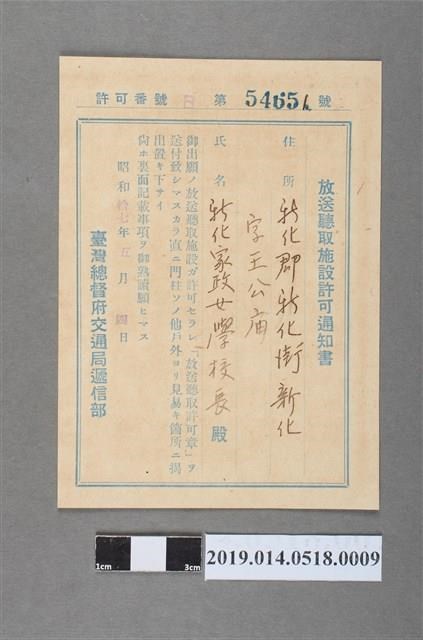 許可番號 B 第 54651 號
放送聽取施設許可通知書
住所 新化郡新化街新化
字王公庙
氏名 新化家政女學校長 殿
御出願ノ放送聽取施設ガ許可セラレ「放送聽取許可章」ヲ
送付致シマスカラ直ニ門柱ソノ他戶外ヨリ見易キ箇所ニ揭
出置キ下サイ
尙ホ裏面記載事項ヲ御熟讀願ヒマス
昭和拾七年五月四日
臺灣總督府交通局遞信部
1cm
3cm
2019.014.0518.0009